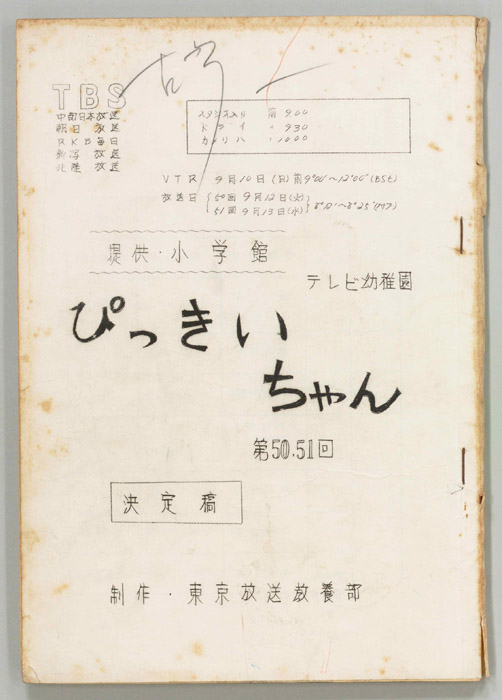 TBS
中部日本放送
朝日放送
RKB毎日
新潟放送
北陸放送
スタジオ入り 前 9.00
ドライ 〃 930
カメリハ 〃 1000
VTR 9月10日(日)前9°00'~12°00'(BST)
放送日 50回 9月12日(火)
51回 9月13日(水) 8°10'~8°25'
提供・小学館
テレビ幼稚園
ぴっきい
ちゃん
第50.51回
決定稿
制作・東京放送放養部